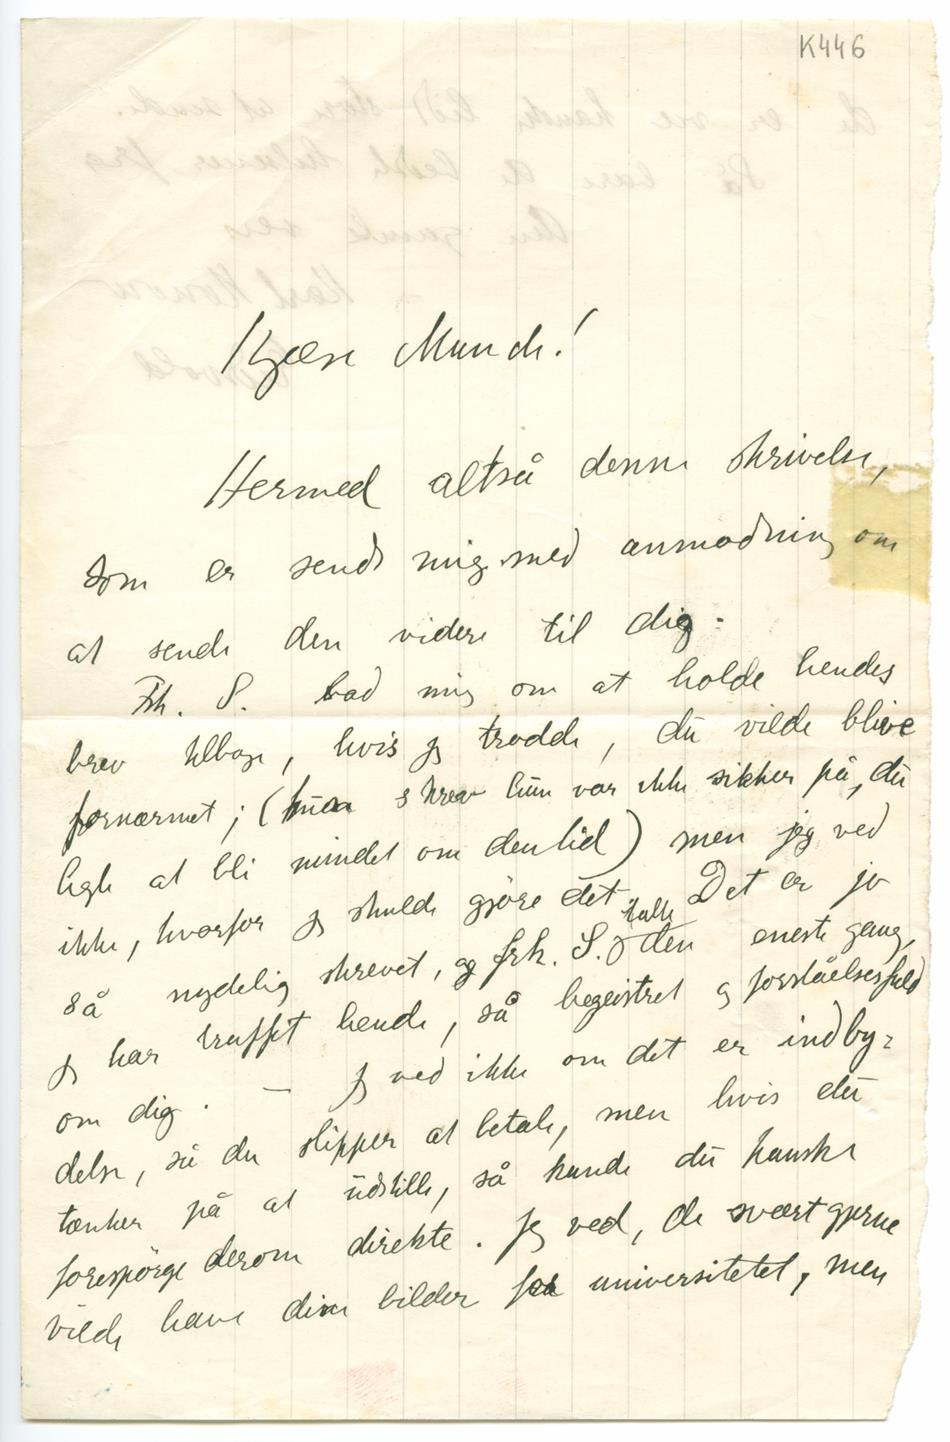 K446
Kjære Munch!
Hermed altså denne skrivelse,
som er sendt mig med anmodning om
at sende den videre til dig.
Frk. S. bad mig om at holde hendes
brev tilbage, hvis jeg trodde, du vilde blive
fornærmet; (hun skrev hun var ikke sikker på, du
ligte at bli mindet om den tid) men jeg ved
ikke, hvorfor jeg skulde gjöre det. Det er jo
så nydelig skrevet, og frk. S. talte den eneste gang,
jeg har truffet hende, så begeistret og forståelsesfuld
om dig. — Jeg ved ikke om det er indby-
delse, så du slipper at betale, men hvis du
tænker på at udstille, så kunde du kanske
forespörge derom direkte. Jeg ved, de svært gjerne
vilde have dine bilder fra universitetet, men